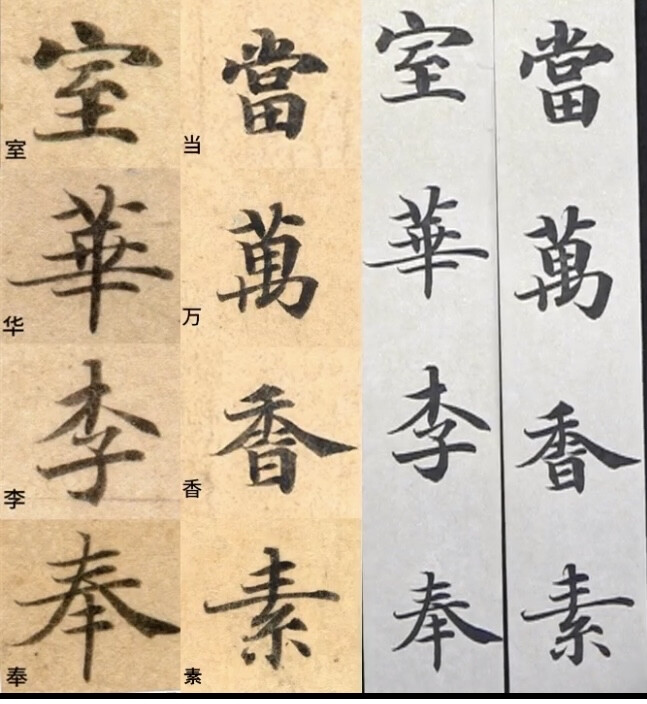 室 當 室 當
室 当
華 萬 華 萬
华 万
李 香 李 香
李 香
奉 素 奉 素
奉 素